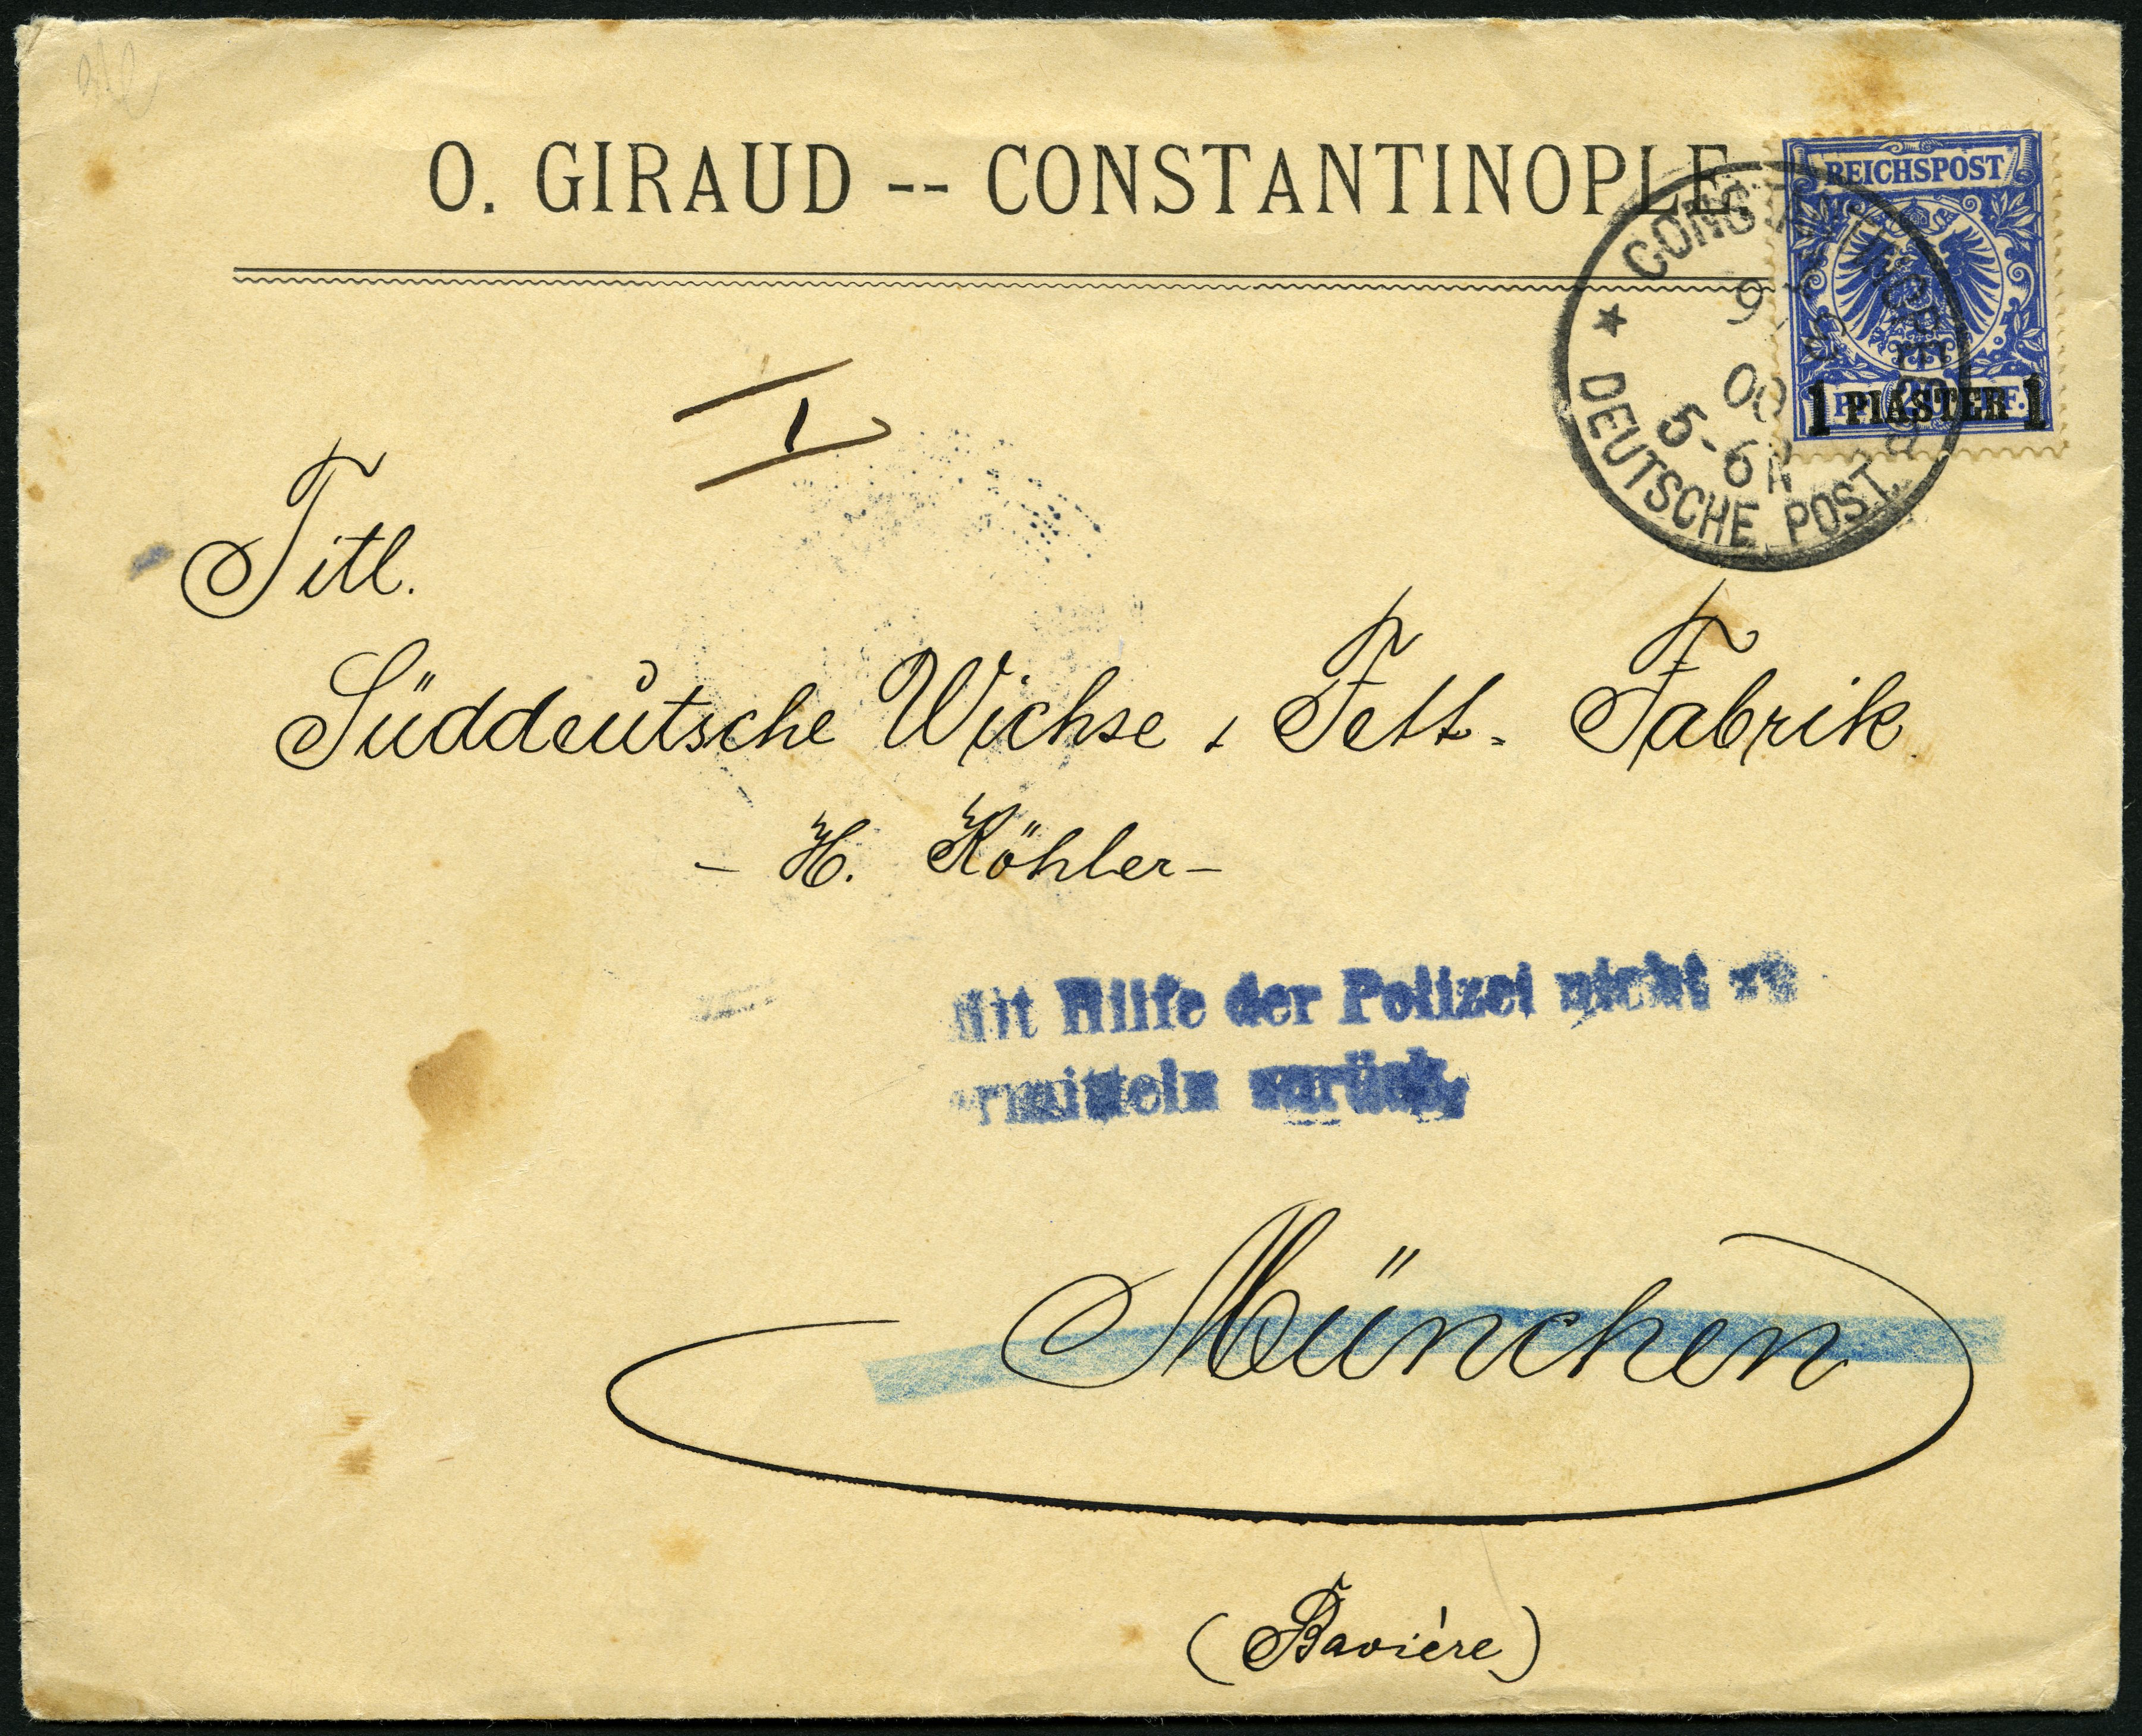 O. GIRAUD -- CONSTANTINOPLE.
REICHSPOST
1 PIASTER 1
CONSTANTINOPEL
9
00
5-6N
DEUTSCHE POST.
I
Titl.
Süddeutsche Wichse & Fett-Fabrik
- H. Köhler -
Mit Hilfe der Polizei nicht zu
ermitteln zurück,
München
(Bavière)